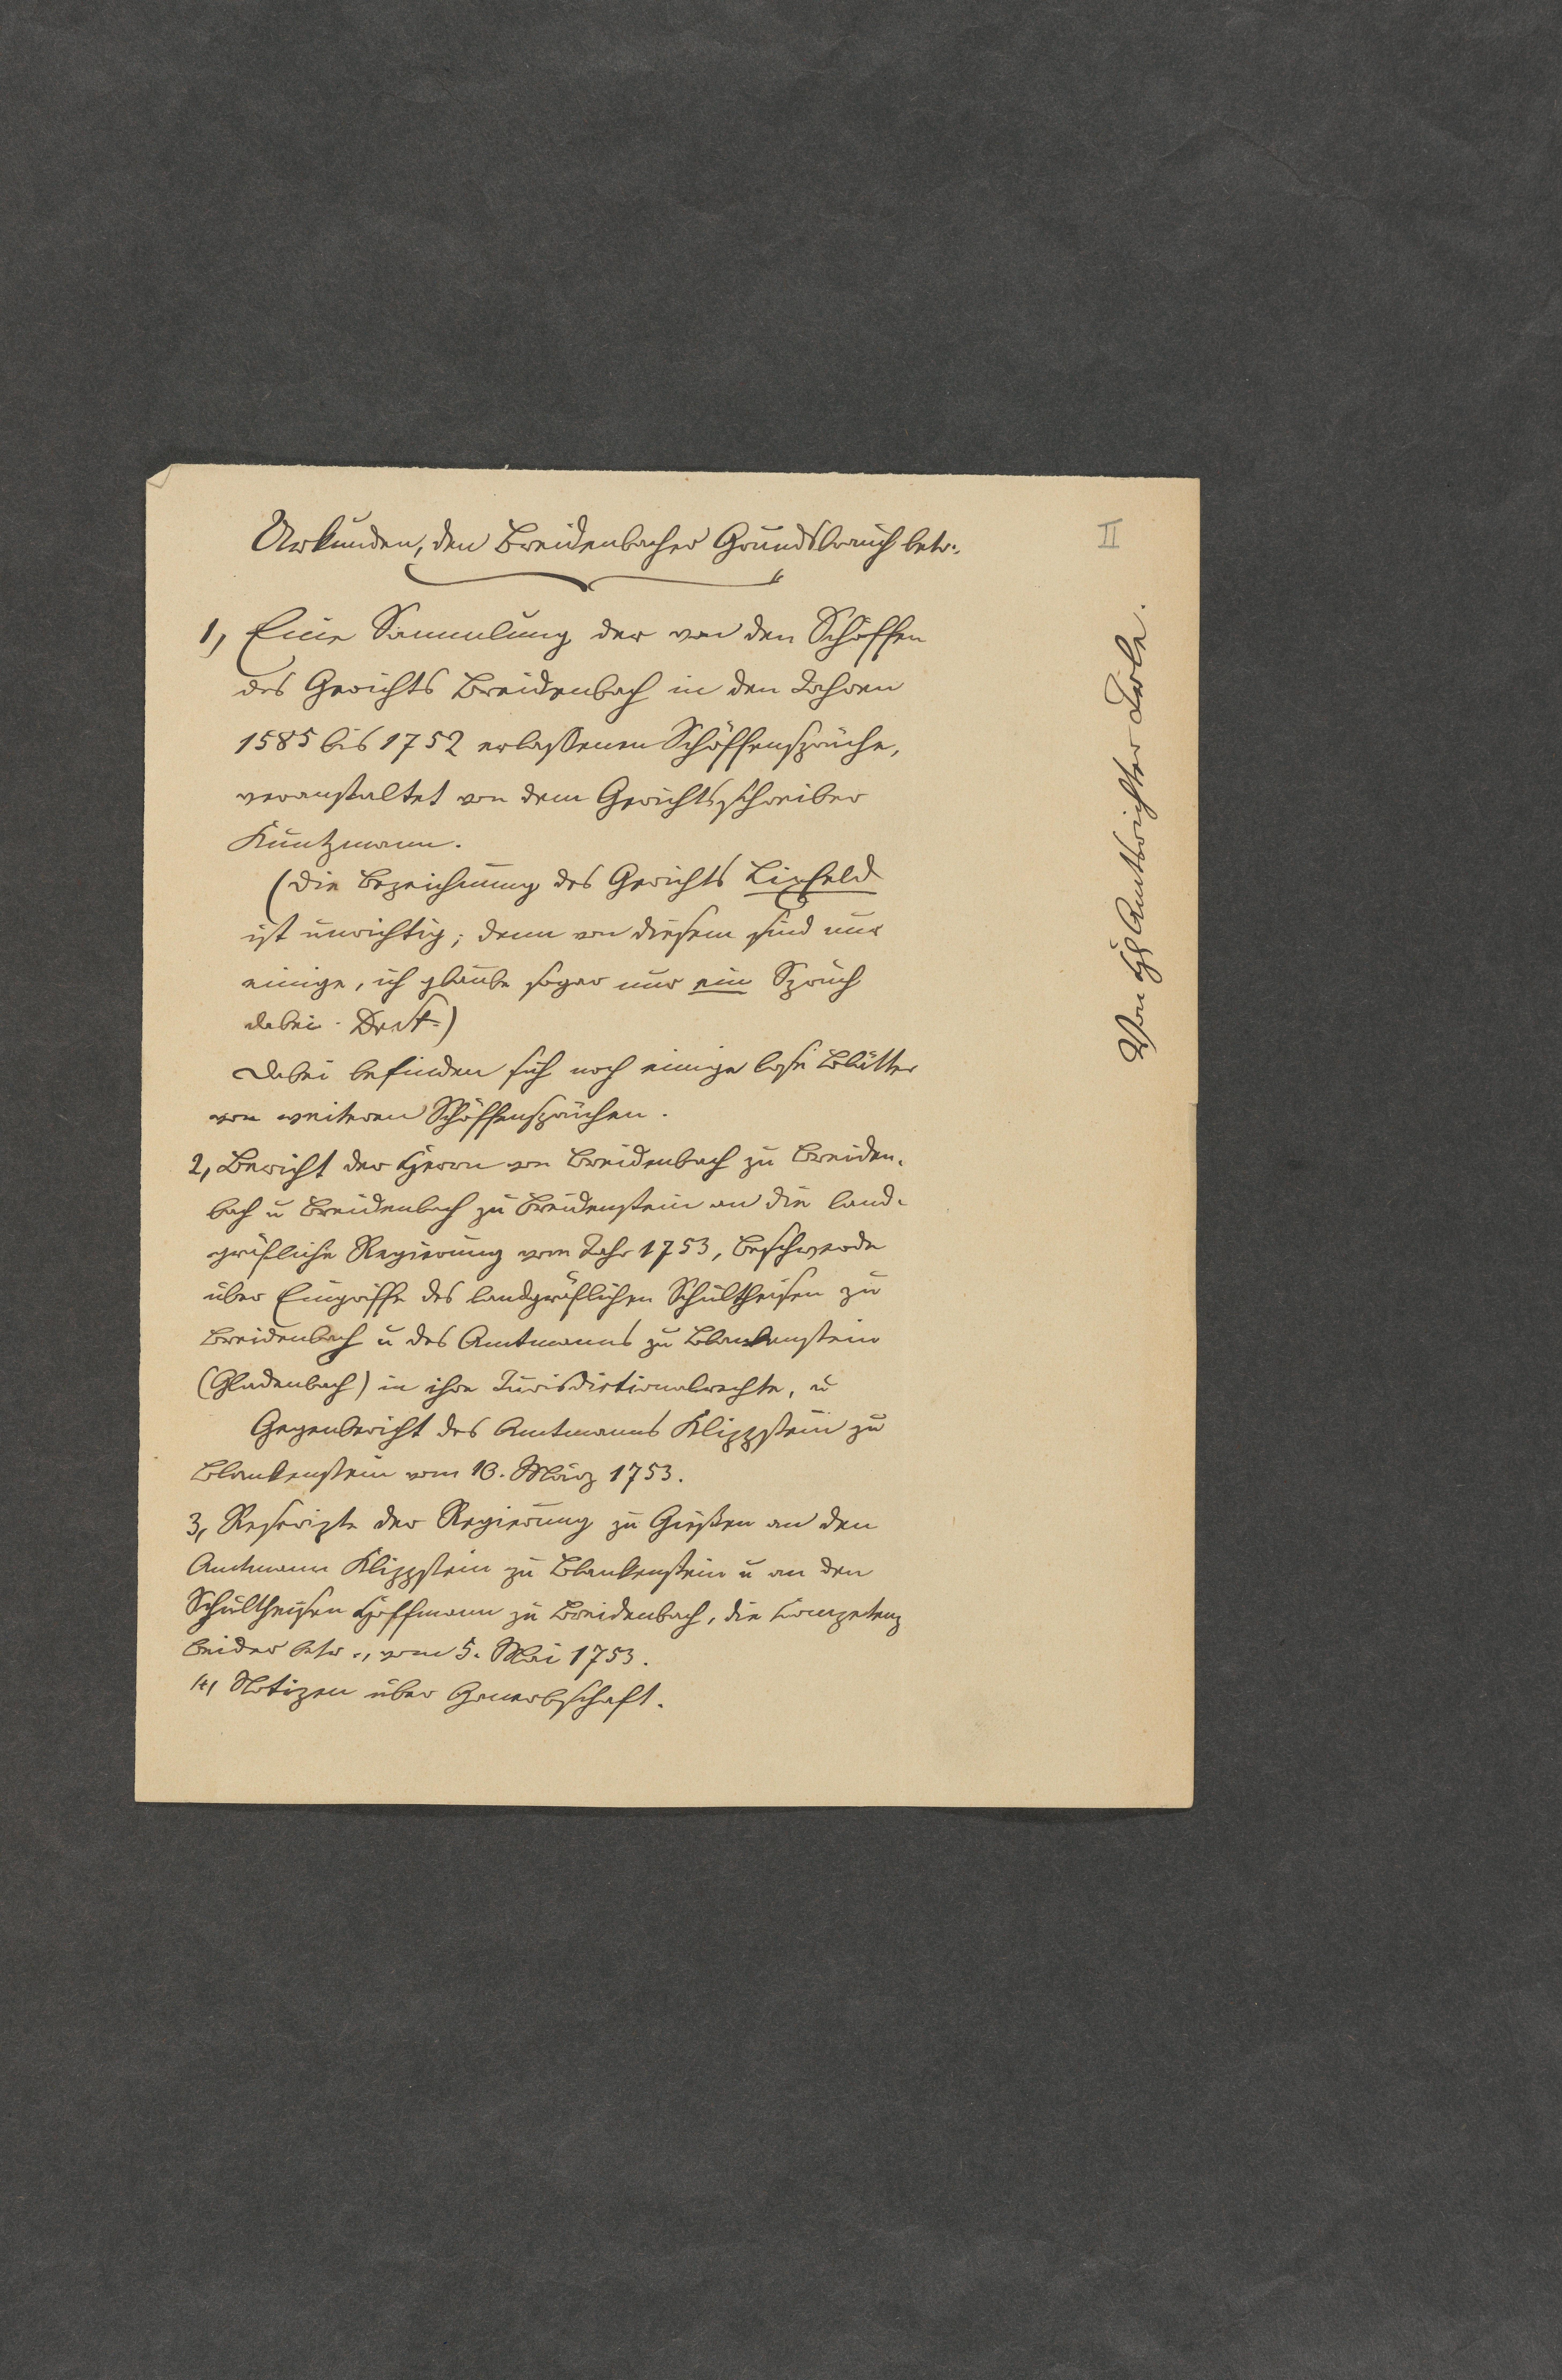 Urkunden, den Breidenbacher Grundsbrauch betr.,
II
1, Eine Sammlung der von den Schöffen
des Gerichts Breidenbach in den Jahren
1585 bis 1752 erlassenen Schöffensprüche,
veranstaltet von dem Gerichtsschreiber
Kuntzmann.
(Die Bezeichnung des Gerichts Lixfeld
ist unrichtig; denn von diesem sind nur
einige, ich glaube sogar nur ein Spruch
dabei.
Dabei befinden sich noch einige lose Blätter
von weiteren Schöffensprüchen.
2, Bericht der Herrn von Breidenbach zu Breiden-
bach u Breidenbach zu Breidenstein an die land-
gräfliche Regierung vom Jahr 1753, Beschwerde
über Eingriffe des landgräflichen Schultheisen zu
Breidenbach u des Amtmanns zu Blankenstein
(Gladenbach) in ihre Jurisdictionalrechte, u
Gegenbericht des Amtmanns Klippstein zu
Blankenstein vom 10. März 1753.
3, Rescripte der Regierung zu Gießen an den
Amtmann Klippstein zu Blankenstein u an den
Schultheisen Hoffmann zu Breidenbach, die Kompetenz
beider betr., vom 5. Mai 1753.
4, Notizen über Ganerbschaft.
Von Amtsrichter